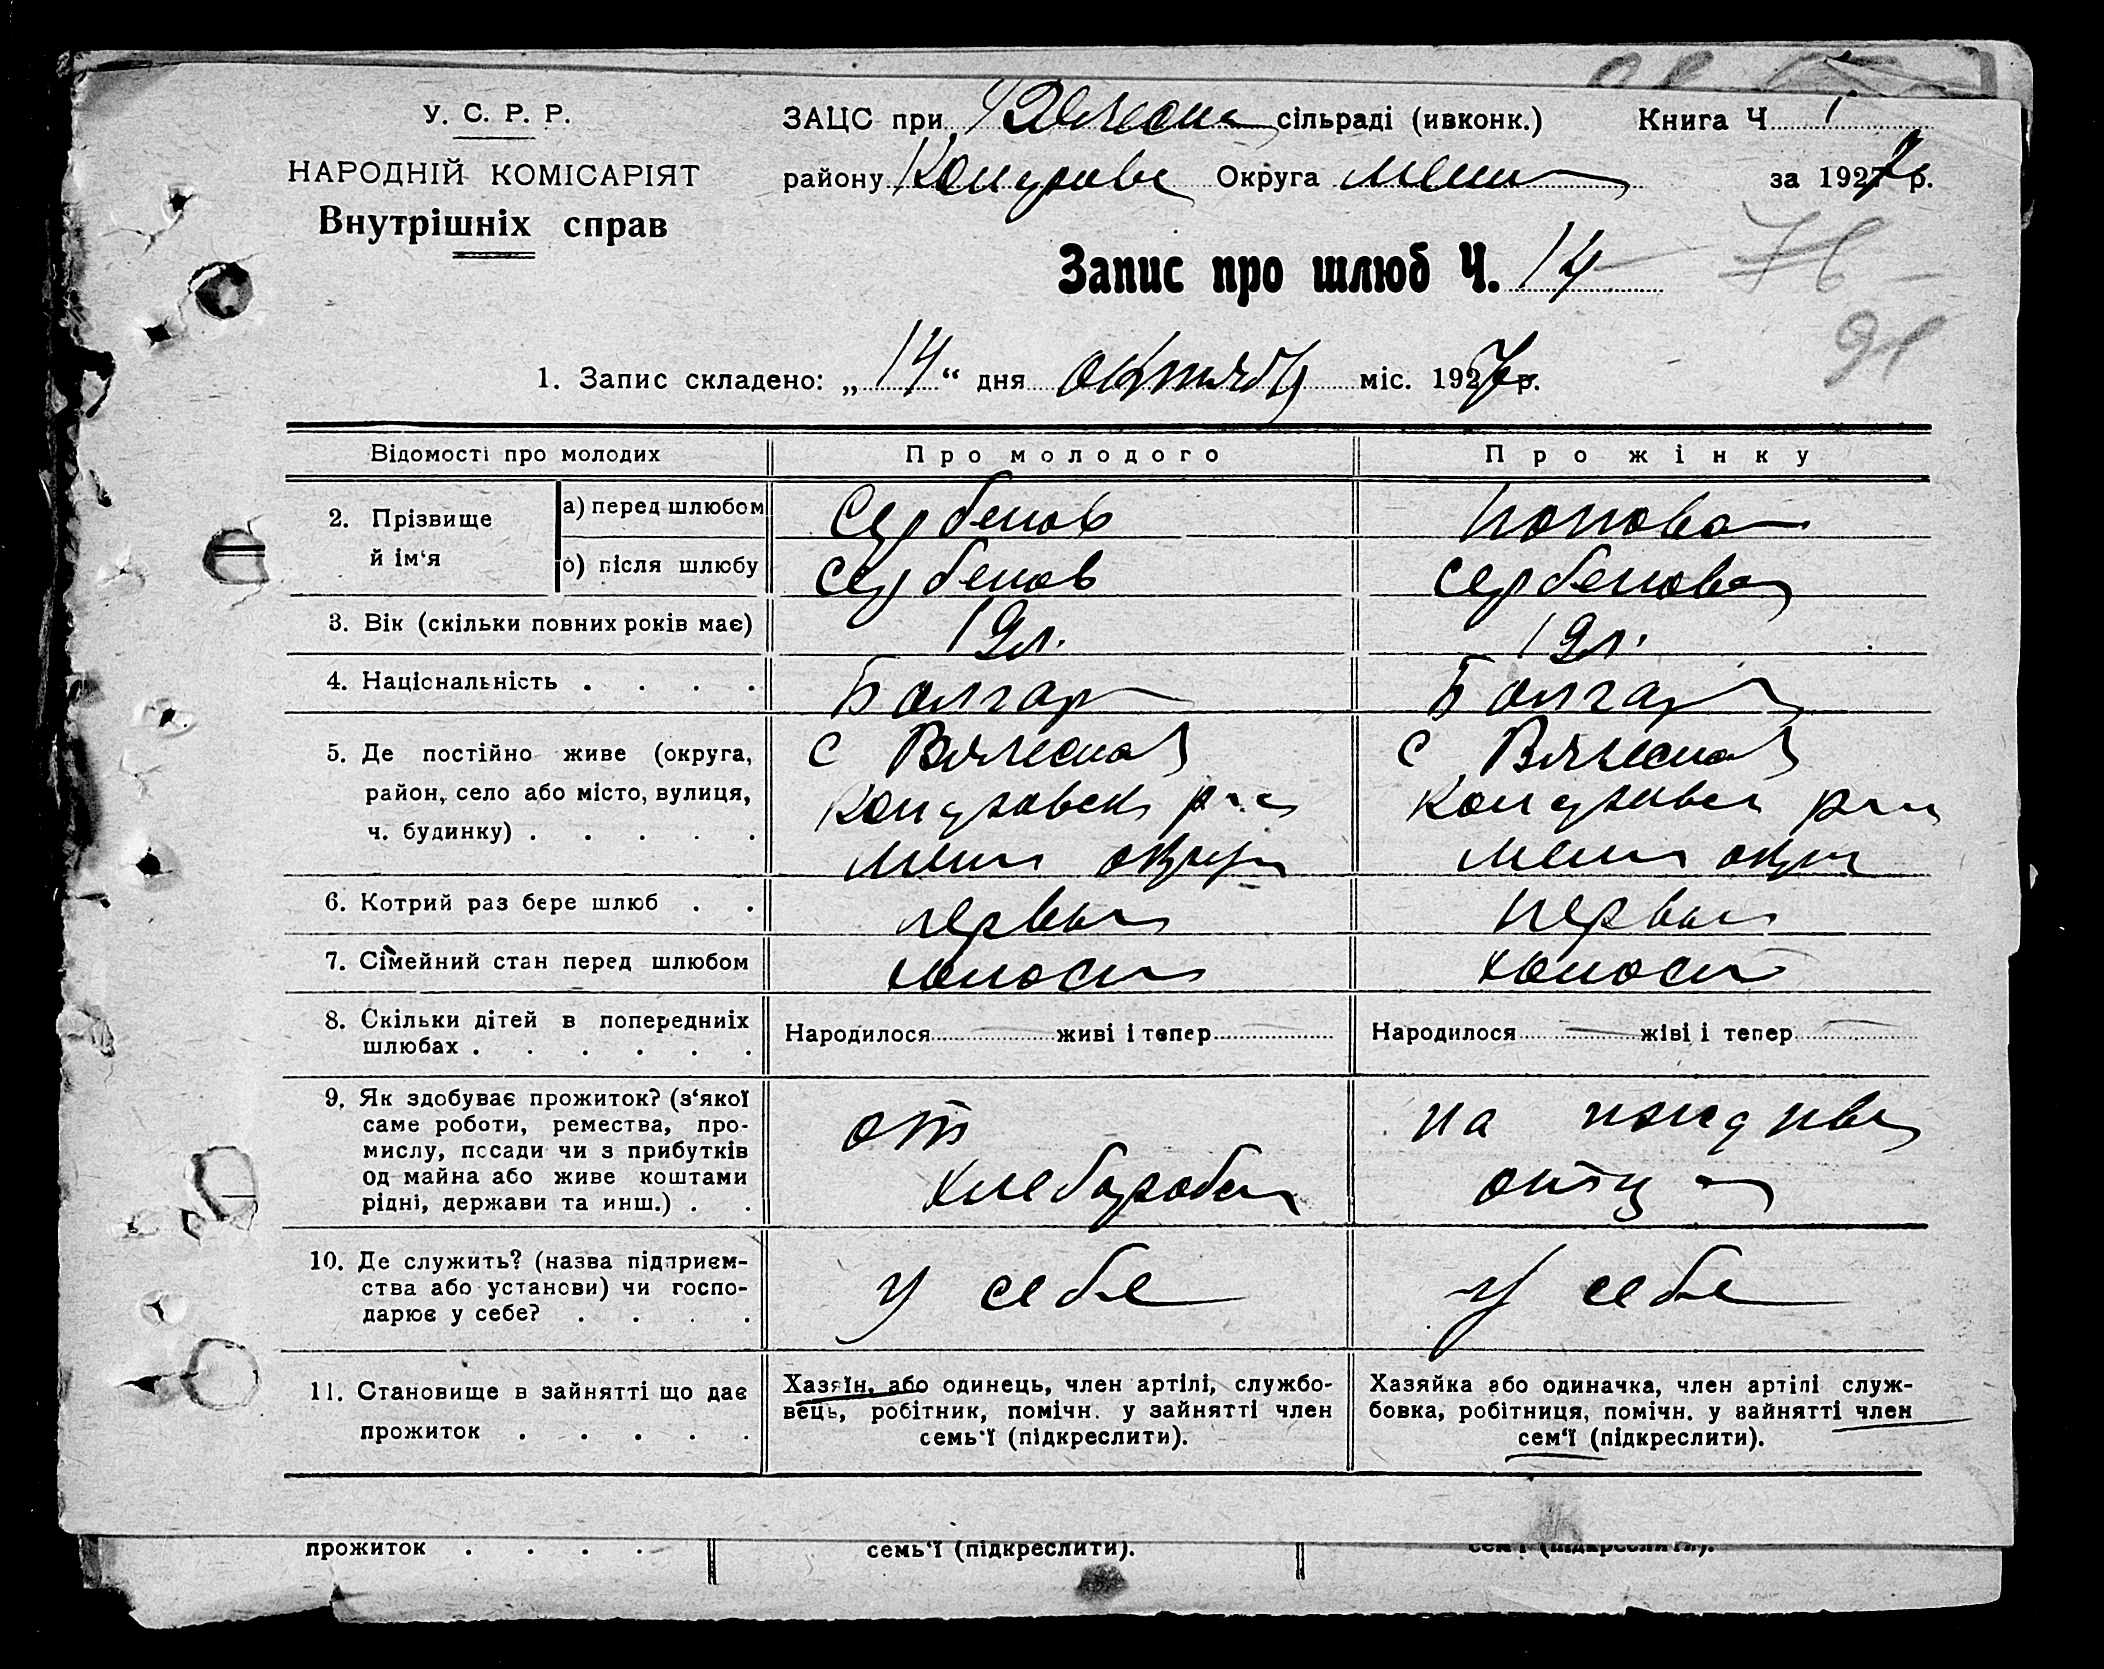 У. С. Р. Р.
НАРОДНІЙ КОМІСАРІЯТ
Внутрішніх справ
ЗАЦС при сільраді (ивконк.) Книга Ч 1
району Округа за 1927 р.
Запис про шлюб Ч. 14
76
91
1. Запис складено: „14“ дня октября міс. 1927 р.
Відомості про молодих Про молодого Про жінку
2. Прізвище й ім‘я
а) перед шлюбом Сербенов Попова
б) після шлюбу Сербенов Сербенова
3. Вік (скільки повних років має) 19л. 19л.
4. Національність . . . . Болгар Болгар
5. Де постійно живе (округа, с Вячеслав с Вячеслав
район, село або місто, вулиця,
ч. будинку) . . . . .
6. Котрий раз бере шлюб . . первый первый
7. Сімейний стан перед шлюбом холост холост
8. Скільки дітей в попередниіх
шлюбах . . . . . .
Народилося живі і тепер Народилося жіві і тепер
9. Як здобуває прожиток? (з‘якої
саме роботи, ремества, про-
мислу, посади чи з прибутків
од майна або живе коштами
рідні, держави та инш.) . .
от
на
отца
10. Де служить? (назва підприєм-
ства або установи) чи госпо-
дарює у себе? . . . .
у себе у себе
11. Становище в зайнятті що дає
прожиток . . . . .
Хазяїн, або одинець, член артілі, службо-
вець, робітник, помічн. у зайнятті член
семь‘ї (підкреслити).
Хазяйка або одиначка, член артілі служ-
бовка, робітниця, помічн. у зайнятті член
сем‘ї (підкреслити).
прожиток . . . . семь‘ї (підкреслити). сем‘ї (підкреслити).